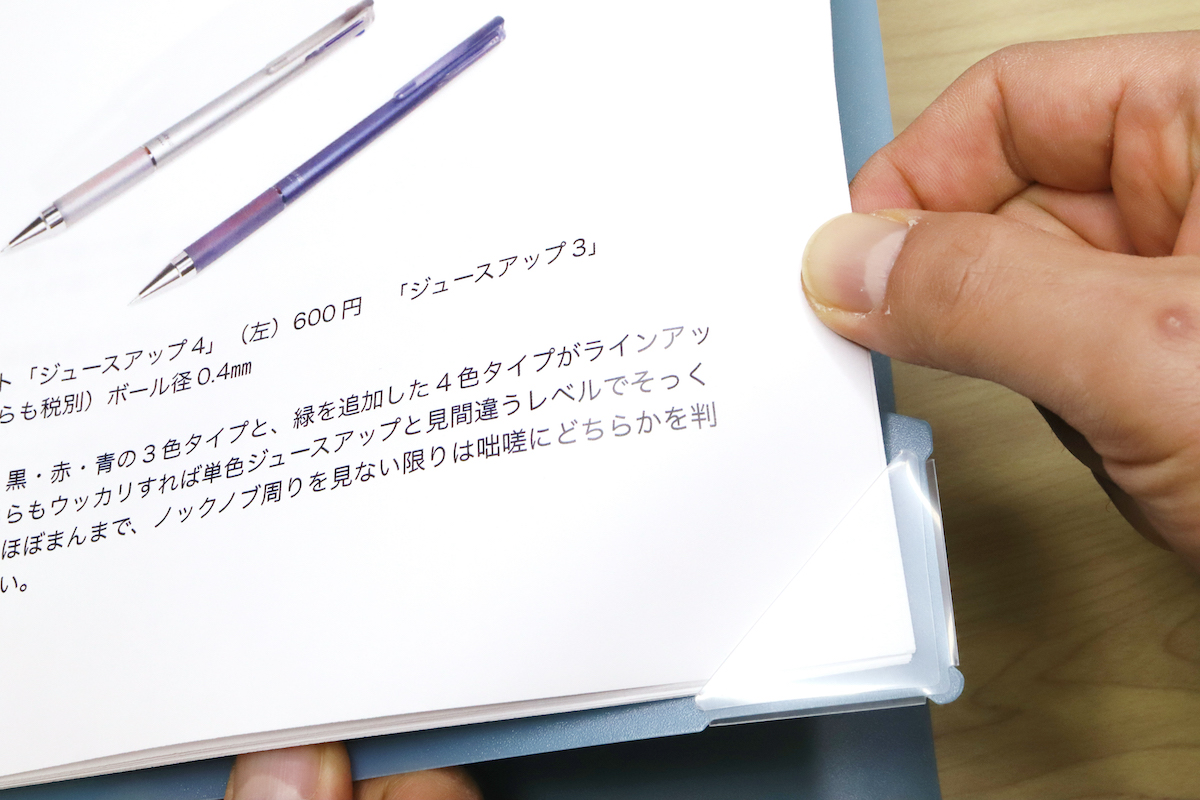 ト「ジュースアップ4」（左）600円 「ジュースアップ3」
らも税別）ボール径0.4㎜
黒・赤・青の3色タイプと、緑を追加した4色タイプがラインアッ
らもウッカリすれば単色ジュースアップと見間違うレベルでそっく
ほぼまんまで、ノックノブ周りを見ない限りは咄嗟にどちらかを判
い。